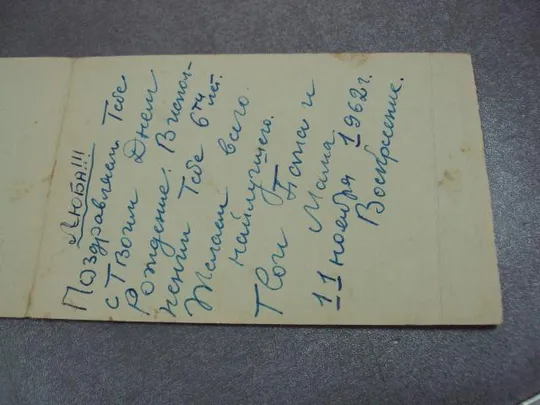 ЛЮБА!!!
Поздравляем Тебе
с Твоим Днем
Рождение. В исполнении
Тебе 6ти лет.
Желаем всего
найлучшего.
Твои Папа и
Мама
11 ноября 1962 г.
Воскресение.